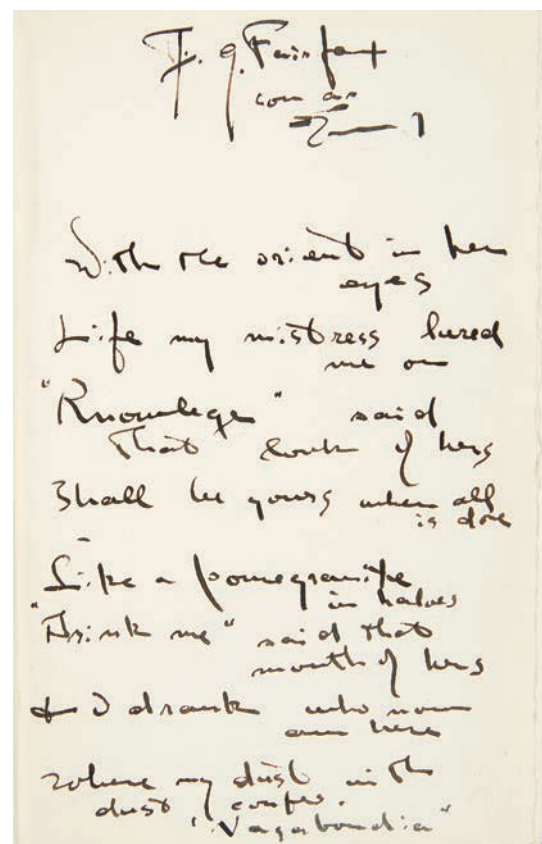 J. G. Fairfax
con
With the orient in her
eyes
Life my mistress lured
me on
"Knowlege" said
That look of hers
Shall be yours when all
is done
Like a pomegranite
in halves
"Drink me" said that
mouth of hers
& I drank who now
am here
Where my dust in the
dust confers.
"Vagabondia"